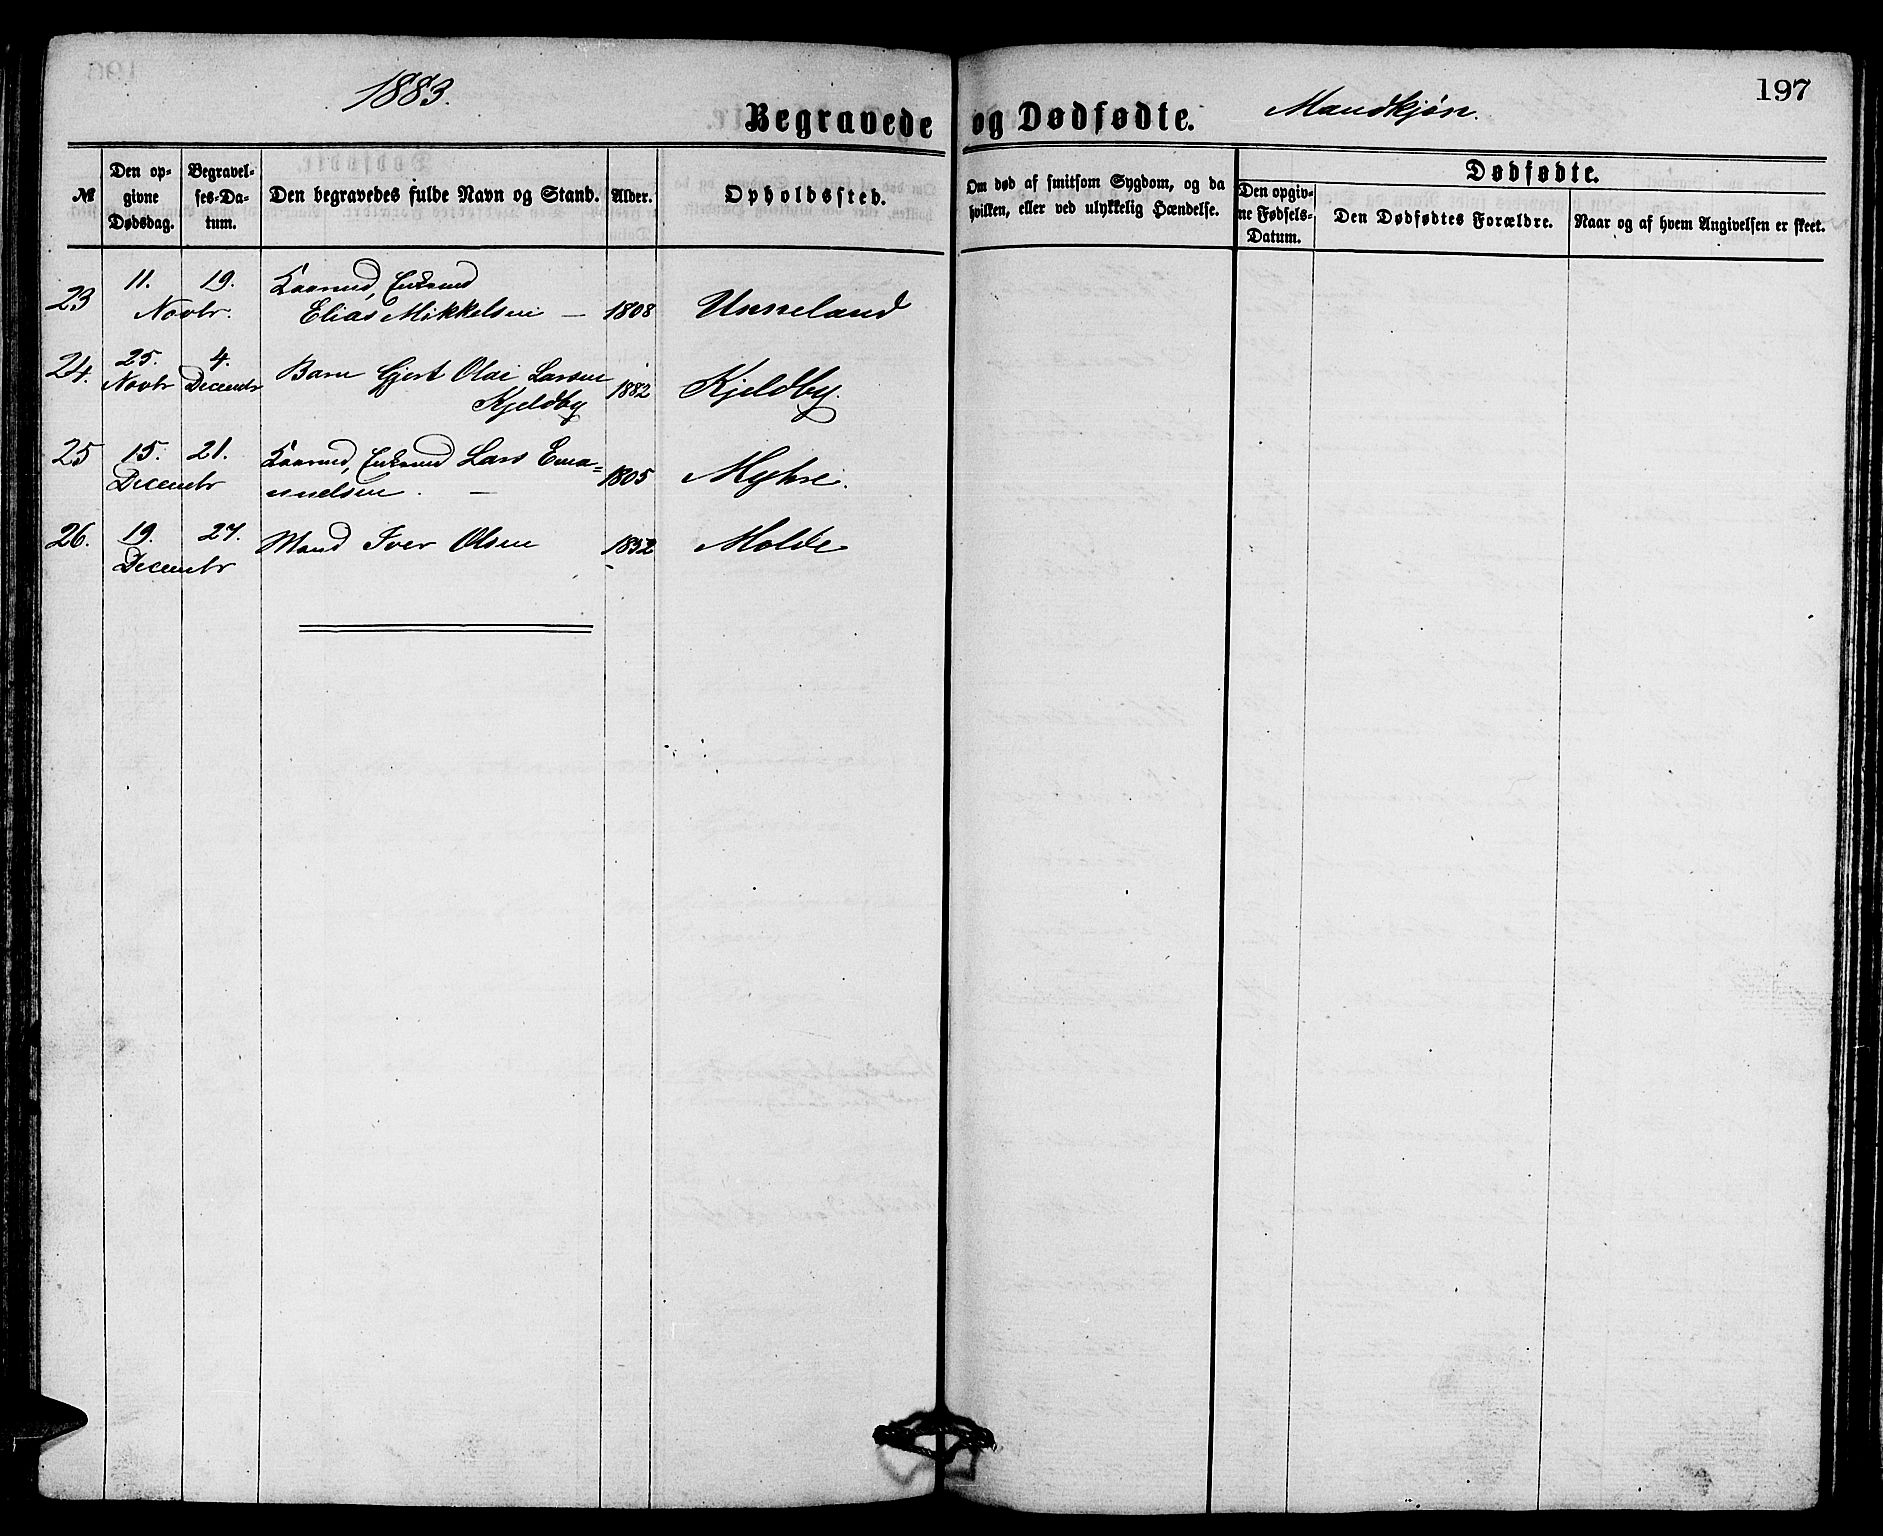 1883.
Begravede og Dødfødte.
Mandkjøn.
197
№
Den op-
givne
Dødsdag.
Begravel-
ses-Da-
tum.
Den begravedes fulde Navn og Stand.
Alder.
Opholdssted.
Om død af smitsom Sygdom, og da
hvilken, eller ved ulykkelig Hændelse.
Dødfødte.
Den opgiv-
ne Fødsels-
Datum.
Den Dødfødtes Forældre.
Naar og af hvem Angivelsen er skeet.
23 11. 19. Kaarmd, Enkemd
Novbr. Elias Mikkelsen — 1808 Unneland
24. 25. 4.
Novbr Decembr Barn Gjert Olai Larsen 1882 Kjeldby.
Kjeldby
25 15. 21. Kaarmd, Enkemd Lars Ema=
Decembr nuelsen. — 1805 Myhre.
26. 19. 27. Mand Iver Olsen 1832 Molde
Decembr